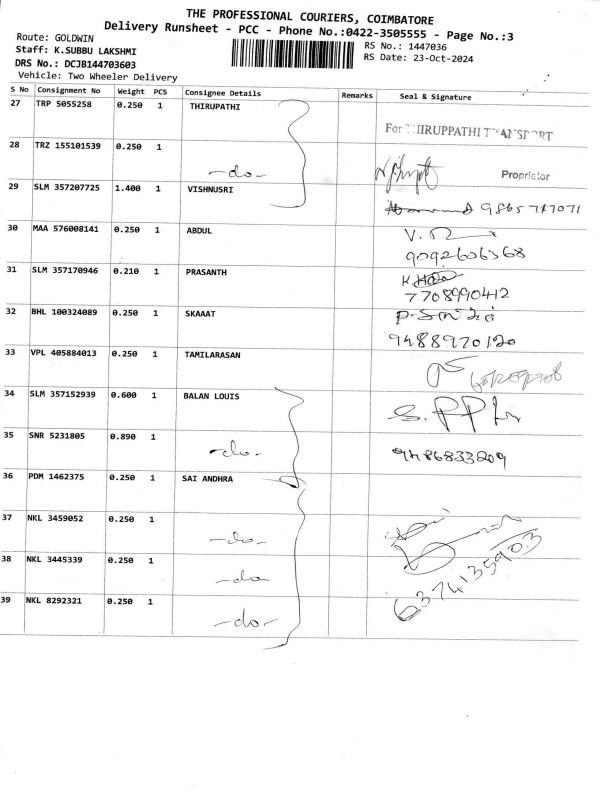 THE PROFESSIONAL COURIERS, COIMBATORE
Delivery Runsheet - PCC - Phone No.:0422-3505555 - Page No.:3
Route: GOLDWIN
RS No.: 1447036
Staff: K.SUBBU LAKSHMI
RS Date: 23-Oct-2024
DRS No.: DCJB144703603
Vehicle: Two Wheeler Delivery
S No Consignment No Weight PCS Consignee Details Remarks Seal & Signature
27 TRP 5055258 0.250 1 THIRUPATHI
For THIRUPPATHI TRANSPORT
28 TRZ 155101539 0.250 1
-do-
Proprietor
29 SLM 357207725 1.400 1 VISHNUSRI
9865717071
30 MAA 576008141 0.250 1 ABDUL
9092606368
31 SLM 357170946 0.210 1 PRASANTH
7708990412
32 BHL 100324089 0.250 1 SKAAAT
9488970120
33 VPL 405884013 0.250 1 TAMILARASAN
34 SLM 357152939 0.600 1 BALAN LOUIS
35 SNR 5231805 0.890 1
-do-
9486833209
36 PDM 1462375 0.250 1 SAI ANDHRA
37 NKL 3459052 0.250 1
-do-
38 NKL 3445339 0.250 1
-do
6374135903
39 NKL 8292321 0.250 1
-do-